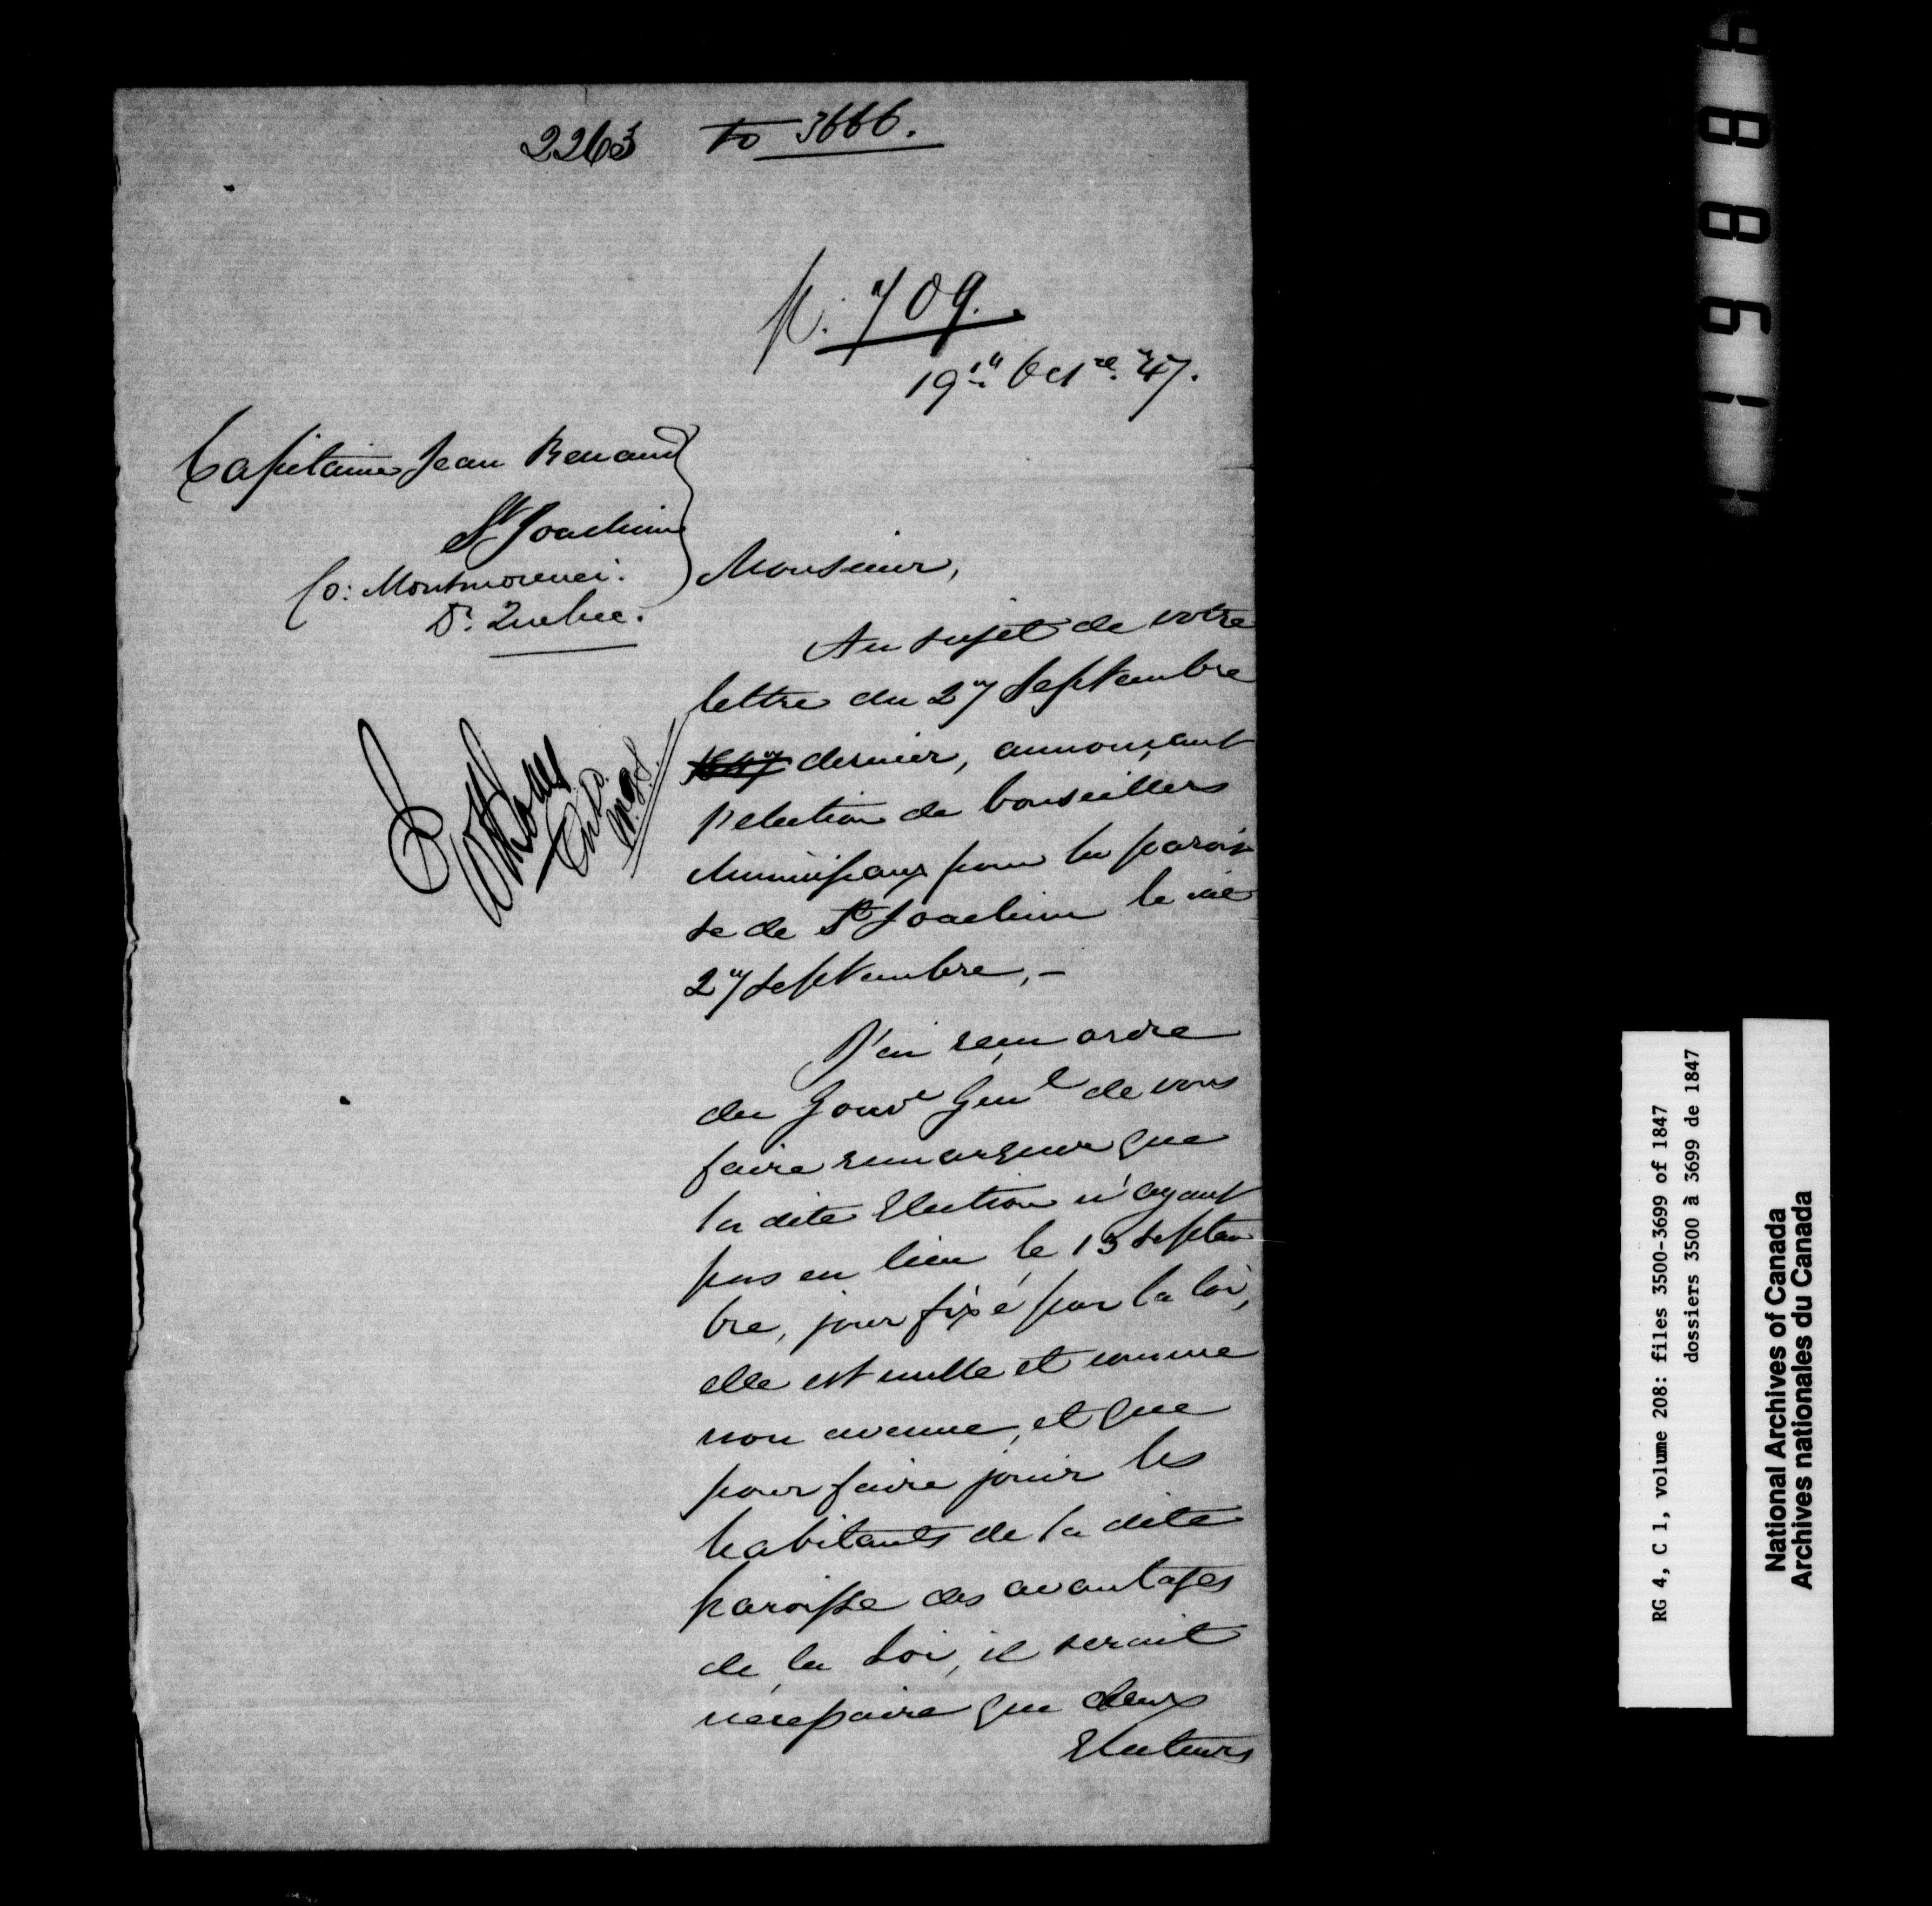 2263 to 3666.
p. 709.
19th Octre. 47.
Capitaine Jean Renaud
St Joachim
Co: Montmorenci.
Dt. Quebec.
Monsieur,
Au sujet de votre
lettre du 27 Septembre
1847 dernier, annonçant
l'election de Conseillers
Municipaux pour la parois
se de St Joachim le
27 Septembre, –
J'ai reçu ordre
du Gouvr Genl de vous
faire remarquer que
la dite Election n'ayant
pas eu lieu le 13 Septem
bre, jour fixé par la loi,
elle est nulle et comme
non avenue, et que
pour faire jouir les
habitants de la dite
paroisse des avantages
de la Loi, il serait
nécessaire que deux
Electeurs
16988
RG 4, C 1, volume 208: files 3500-3699 of 1847
dossiers 3500 à 3699 de 1847
National Archives of Canada
Archives nationales du Canada